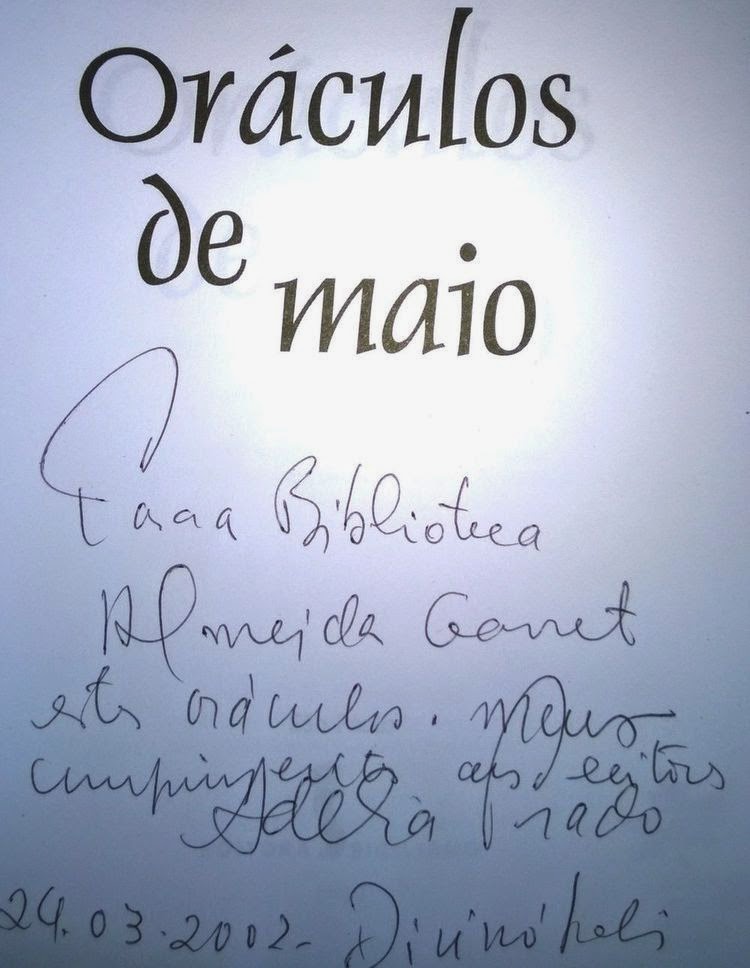 Oráculos
de
maio
Para a Biblioteca
Almeida Garret
estes oráculos. Meus
cumprimentos aos leitores
Adélia Prado
24.03.2002- Divinópolis